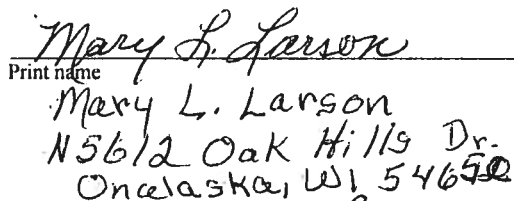 Mary L. Larson
Print name
Mary L. Larson
N5612 Oak Hills Dr.
Onalaska, WI 54650